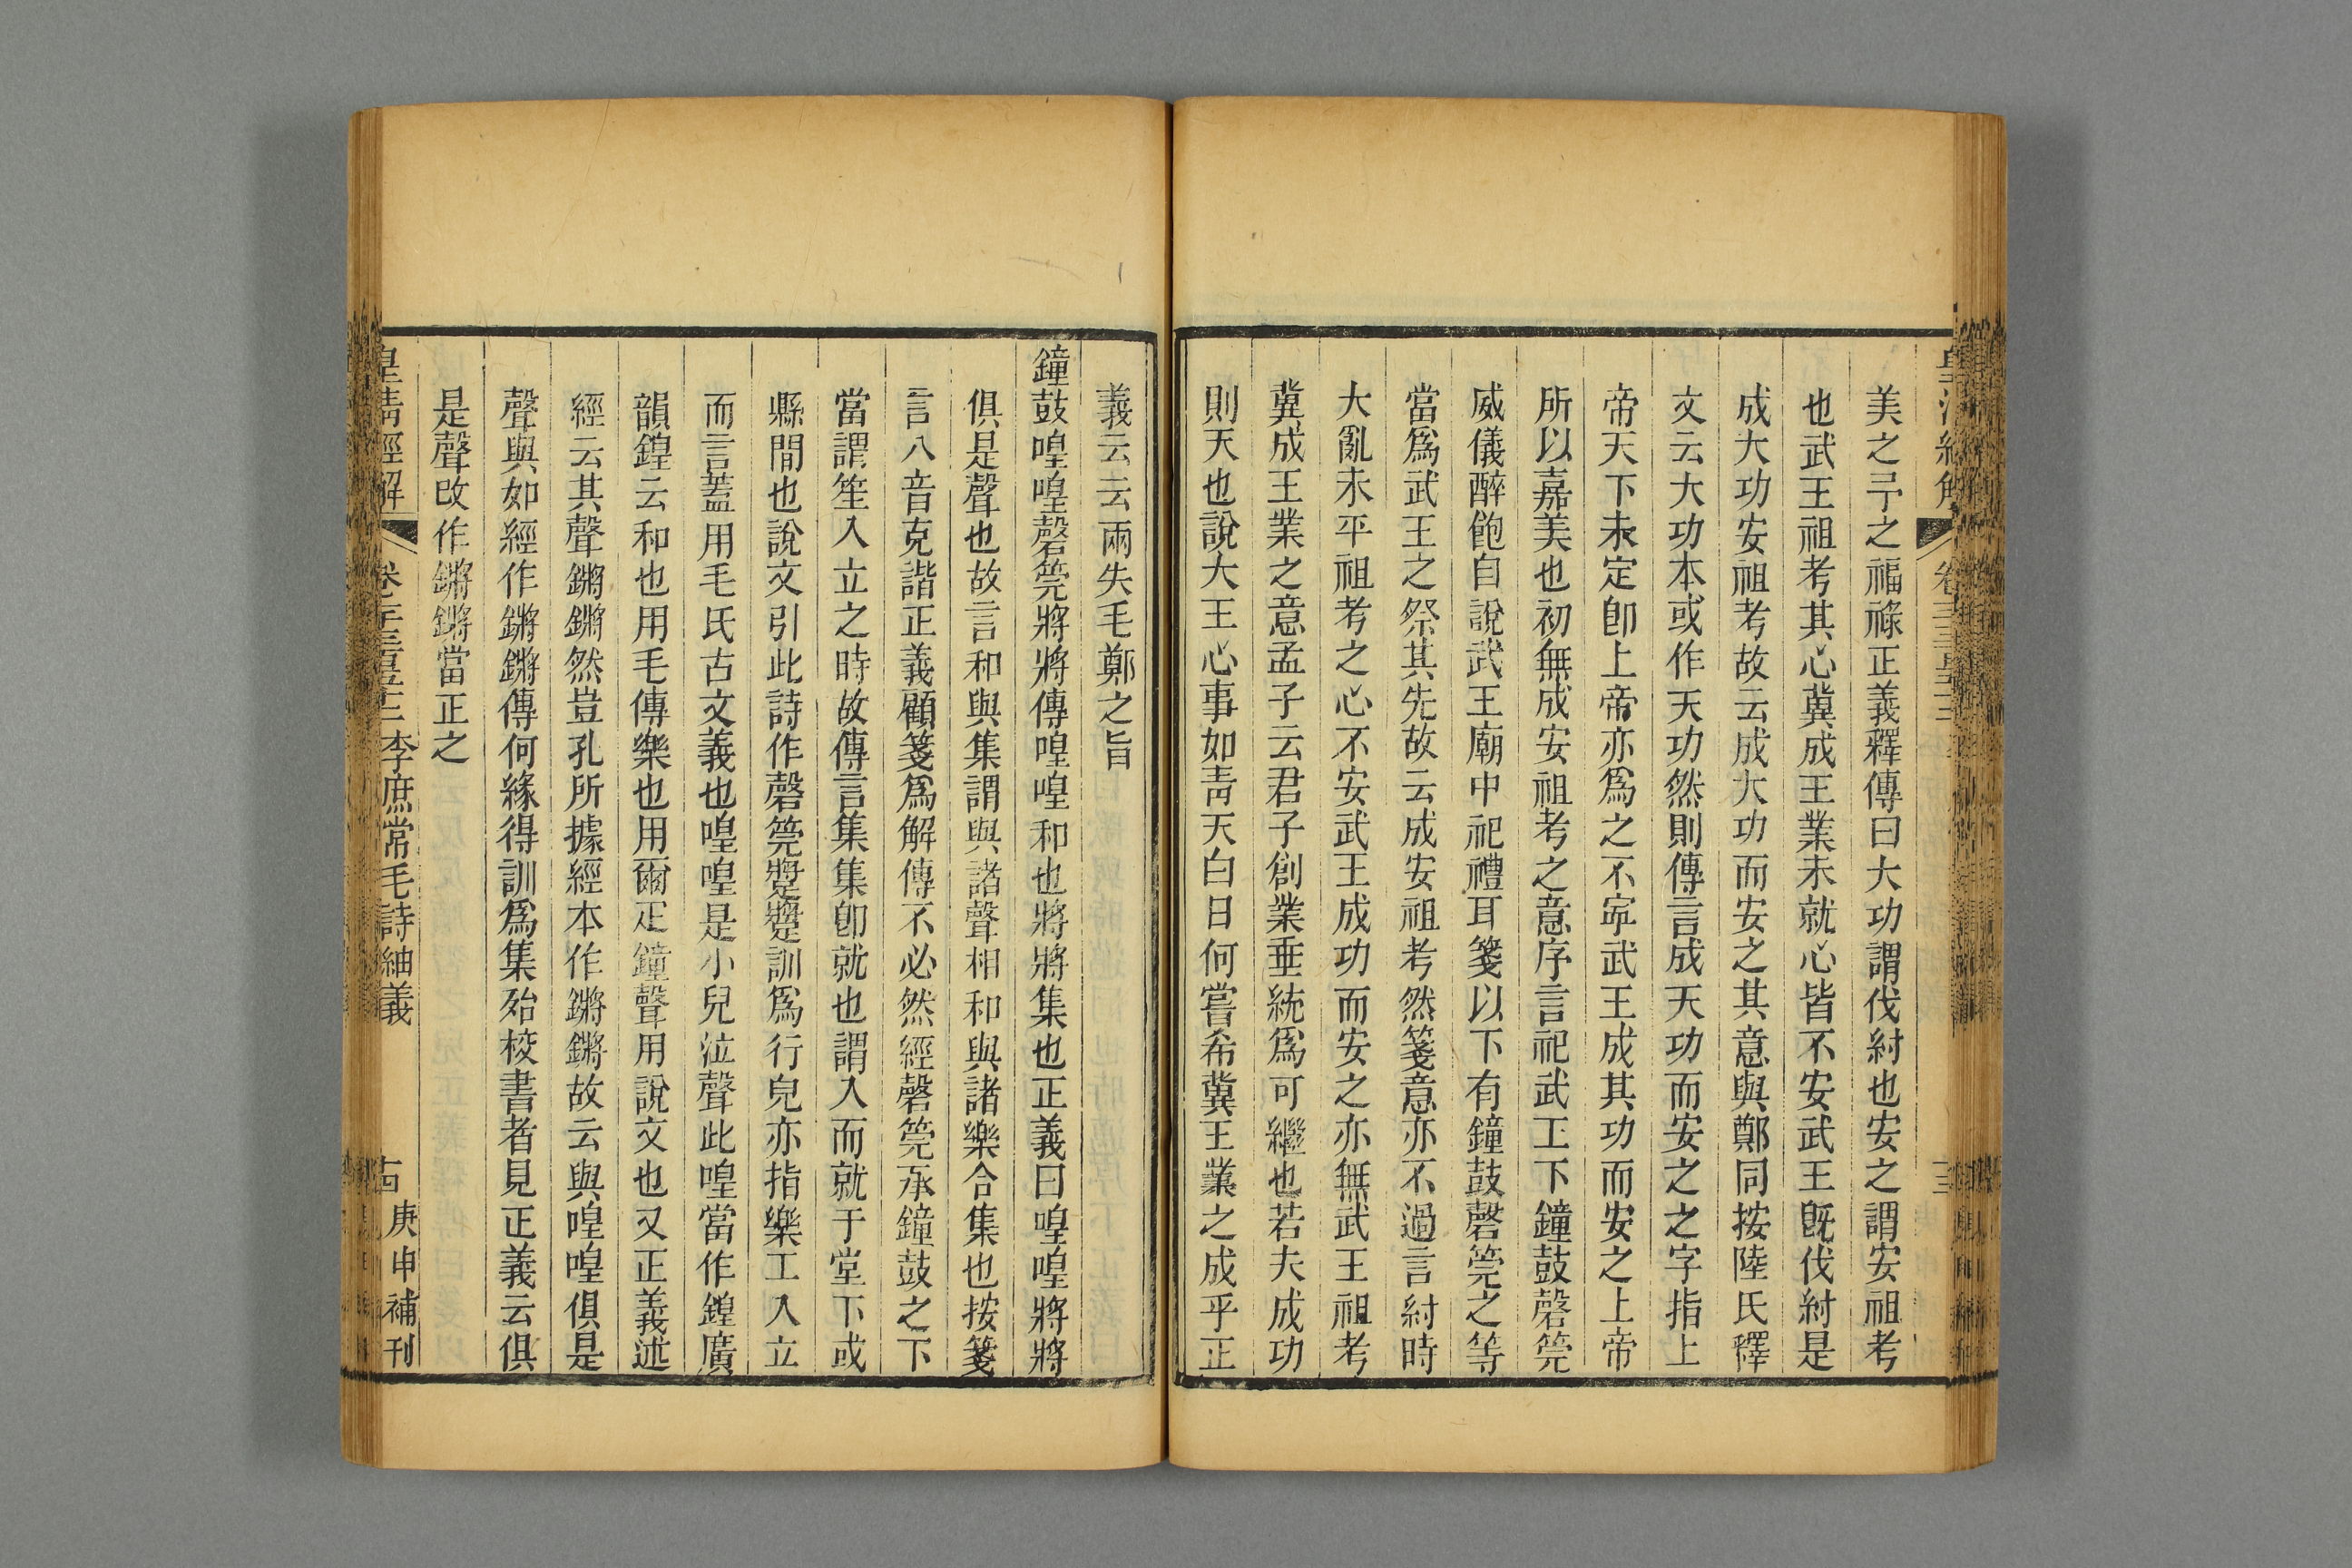 美之予之福祿正義釋傳曰大功謂伐紂也安之謂安祖考
也武王祖考其心冀成王業未就心皆不安武王旣伐紂是
成大功安祖考故云成大功而安之其意與鄭同按陸氏釋
文云大功本或作天功然則傳言成天功而安之之字指上
帝天下未定卽上帝亦爲之不寍武王成其功而安之上帝
所以嘉美也初無成安祖考之意序言祀武王下鐘鼓磬筦
威儀醉飽自說武王廟中祀禮耳箋以下有鐘鼓磬筦之等
當爲武王之祭其先故云成安祖考然箋意亦不過言紂時
大亂未平祖考之心不安武王成功而安之亦無武王祖考
冀成王業之意孟子云君子創業垂統爲可繼也若夫成功
則天也說大王心事如靑天白日何嘗希冀王業之成乎正
義云云兩失毛鄭之旨
鐘鼓喤喤磬筦將將傳喤喤和也將將集也正義曰喤喤將將
俱是聲也故言和與集謂與諸聲相和與諸樂合集也按箋
言八音克諧正義顧箋爲解傳不必然經磬筦承鐘鼓之下
當謂笙入立之時故傳言集集卽就也謂入而就于堂下或
縣間也說文引此詩作磬筦蹩蹩訓爲行皃亦指樂工入立
而言蓋用毛氏古文義也喤喤是小兒泣聲此喤當作鍠廣
韻鍠云和也用毛傳樂也用爾疋鐘聲用說文也又正義述
經云其聲鏘鏘然豈孔所據經本作鏘鏘故云與喤喤俱是
聲與如經作鏘鏘傳何緣得訓爲集殆校書者見正義云俱
是聲改作鏘鏘當正之
皇淸經解 李庶常毛詩紬義 庚申補刊